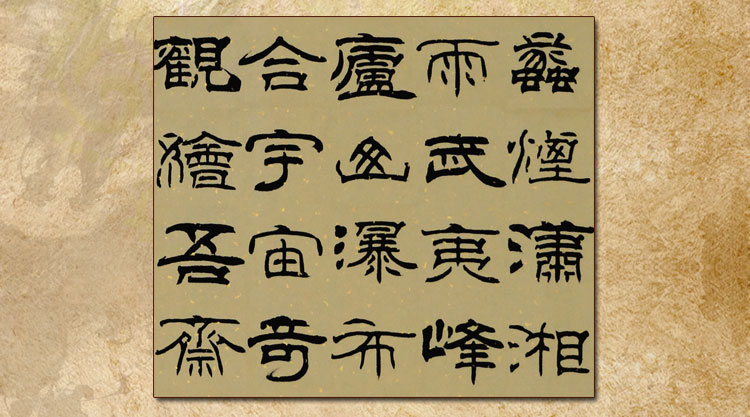 蠡煙瀟湘
雨武夷峰
廬山瀑布
合宇宙奇
觀繪吾齋